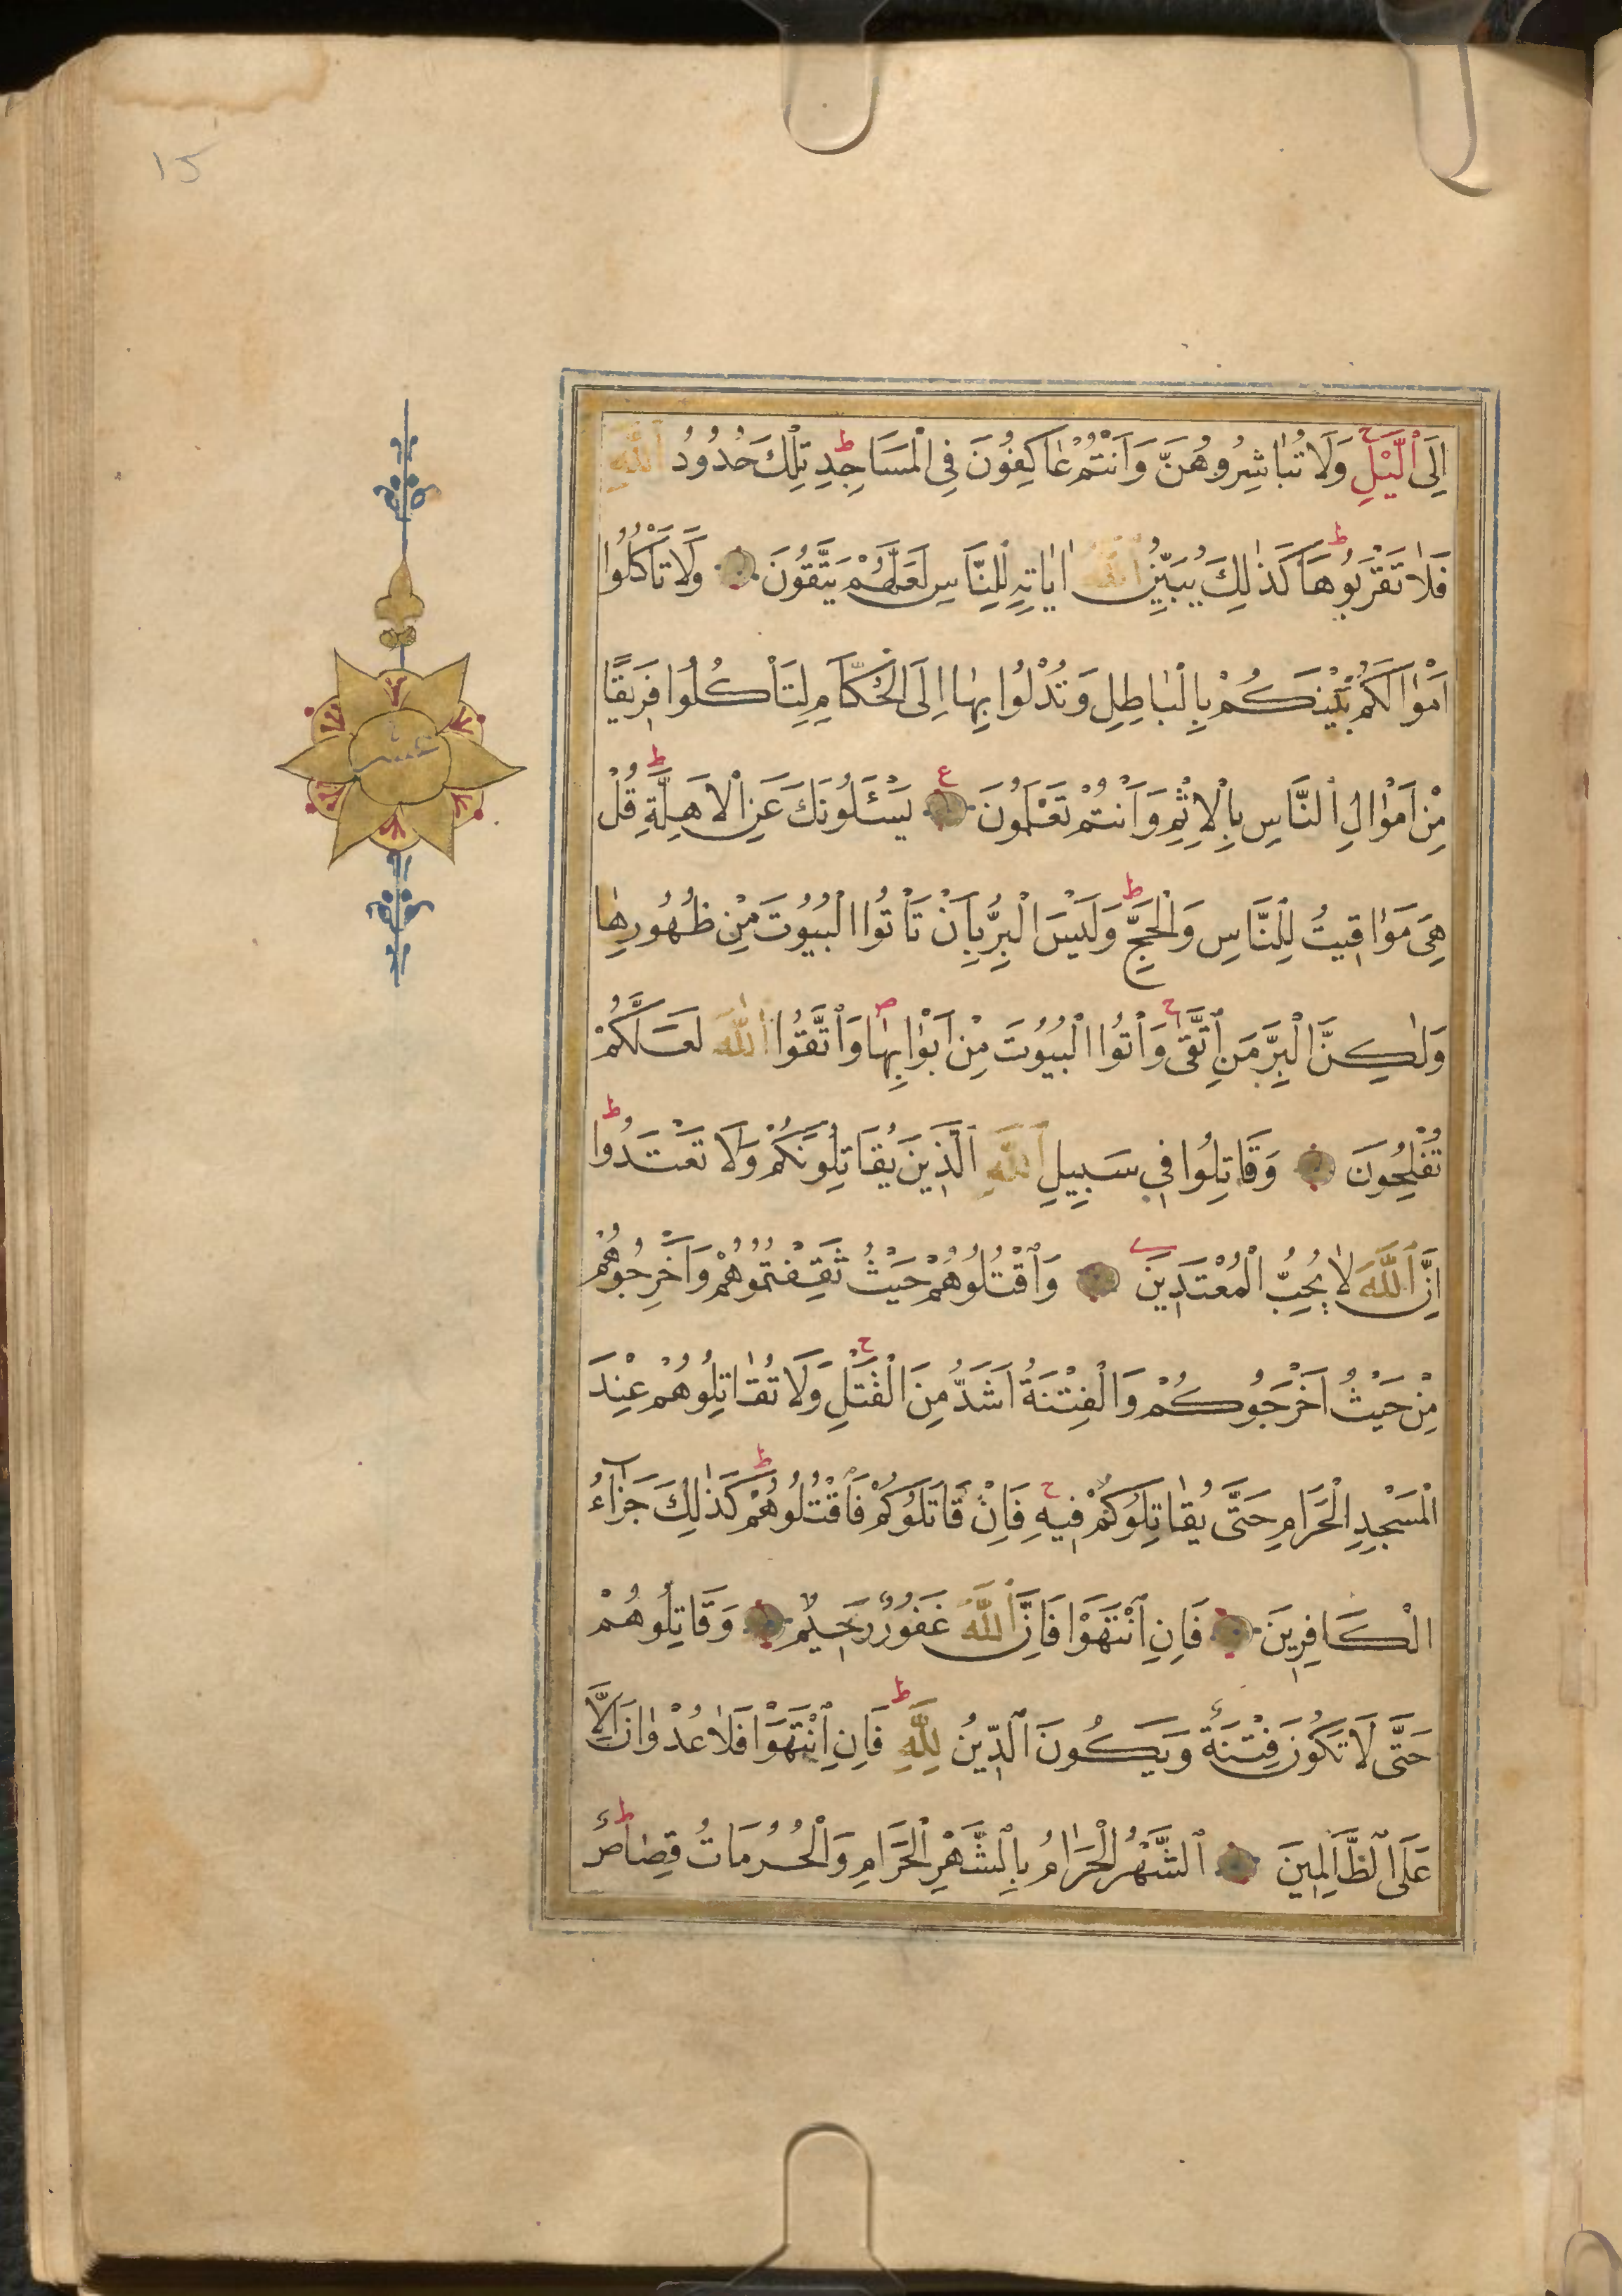 15
اِلَى ٱلَّيْلِ ح وَلَا تُبَاشِرُوهُنَّ وَاَنْتُمْ عَاكِفُونَ فِى الْمَسَاجِدِ ط تِلْكَ حُدُودُ ٱللّٰهِ
فَلَا تَقْرَبُوهَا ط كَذٰلِكَ يُبَيِّنُ ٱللّٰهُ اٰيَاتِهٖ لِلنَّاسِ لَعَلَّهُمْ يَتَّقُونَ وَلَا تَأْكُلُوا
اَمْوَالَكُمْ بَيْنَكُمْ بِالْبَاطِلِ وَتُدْلُوا بِهَا اِلَى الْحُكَّامِ لِتَأْكُلُوا فَرِيقًا
مِنْ اَمْوَالِ ٱلنَّاسِ بِالْاِثْمِ وَاَنْتُمْ تَعْلَمُونَ ع يَسْـَٔلُونَكَ عَنِ الْاَهِلَّةِ ط قُلْ
هِىَ مَوَاقِيتُ لِلنَّاسِ وَالْحَجِّ ط وَلَيْسَ الْبِرُّ بِاَنْ تَأْتُوا الْبُيُوتَ مِنْ ظُهُورِهَا
وَلٰكِنَّ الْبِرَّ مَنِ ٱتَّقٰى ج وَأْتُوا الْبُيُوتَ مِنْ اَبْوَابِهَا ص وَٱتَّقُوا ٱللّٰهَ لَعَلَّكُمْ
تُفْلِحُونَ وَقَاتِلُوا فِى سَبِيلِ ٱللّٰهِ ٱلَّذِينَ يُقَاتِلُونَكُمْ وَلَا تَعْتَدُوا ط
اِنَّ ٱللّٰهَ لَا يُحِبُّ الْمُعْتَدِينَ وَٱقْتُلُوهُمْ حَيْثُ ثَقِفْتُمُوهُمْ وَاَخْرِجُوهُمْ
مِنْ حَيْثُ اَخْرَجُوكُمْ وَالْفِتْنَةُ اَشَدُّ مِنَ الْقَتْلِ ح وَلَا تُقَاتِلُوهُمْ عِنْدَ
الْمَسْجِدِ الْحَرَامِ حَتَّى يُقَاتِلُوكُمْ فِيهِ ح فَاِنْ قَاتَلُوكُمْ فَٱقْتُلُوهُمْ ط كَذٰلِكَ جَزَاءُ
الْكَافِرِينَ فَاِنِ ٱنْتَهَوْا فَاِنَّ ٱللّٰهَ غَفُورٌ رَحِيمٌ وَقَاتِلُوهُمْ
حَتَّى لَا تَكُونَ فِتْنَةٌ وَيَكُونَ ٱلدِّينُ لِلّٰهِ ط فَاِنِ ٱنْتَهَوْا فَلَا عُدْوَانَ اِلَّا
عَلَى ٱلظَّالِمِينَ ٱلشَّهْرُ الْحَرَامُ بِٱلشَّهْرِ الْحَرَامِ وَالْحُرُمَاتُ قِصَاصٌ ط
عشر